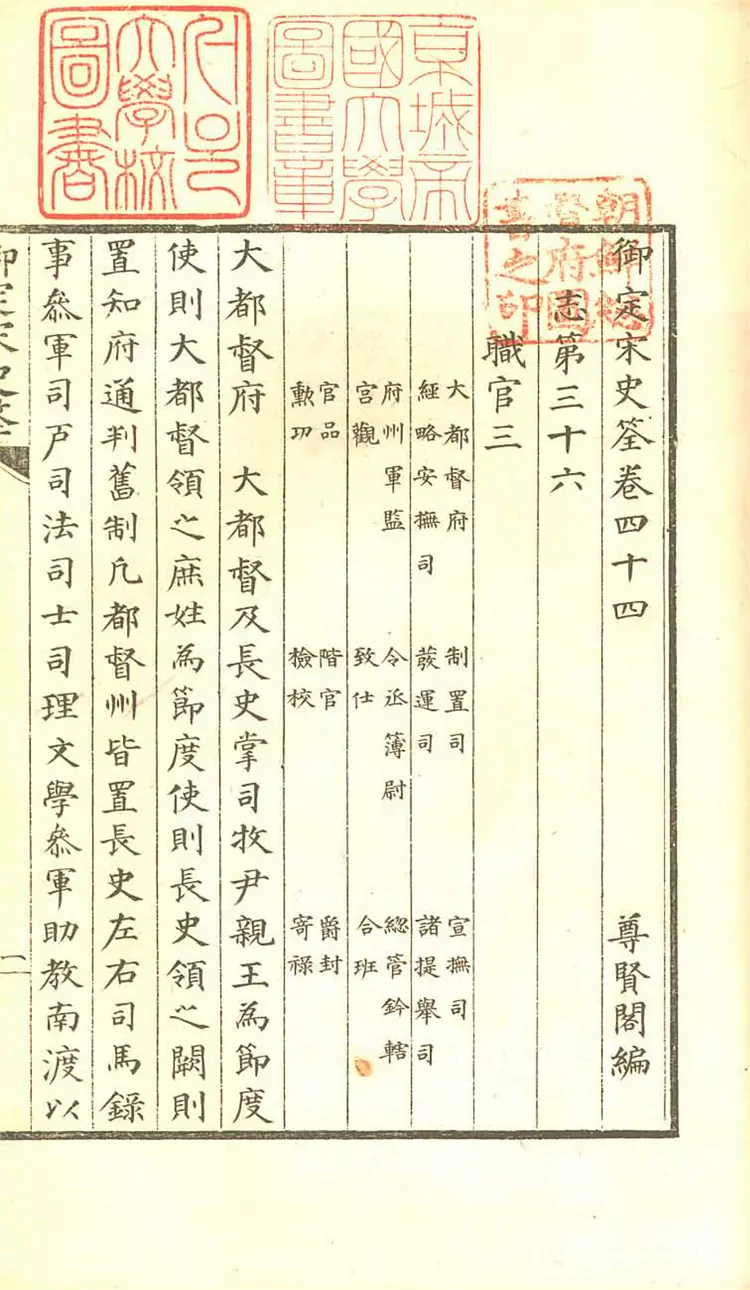 京城帝
國大學
圖書章
大學校
圖書
朝鮮總
督府圖
書之印
御定宋史筌卷四十四 尊賢閣編
志第三十六
職官三
大都督府 制置司 宣撫司
經略安撫司 發運司 諸提舉司
府州軍監 令丞簿尉 緫管鈐轄
宮觀 致仕 合班
官品 階官 爵封
勲功 檢校 寄祿
大都督府 大都督及長史掌司牧尹親王為節度
使則大都督領之庶姓為節度使則長史領之闕則
置知府通判舊制凡都督州皆置長史左右司馬錄
事叅軍司戶司法司士司理文學叅軍助教南渡以